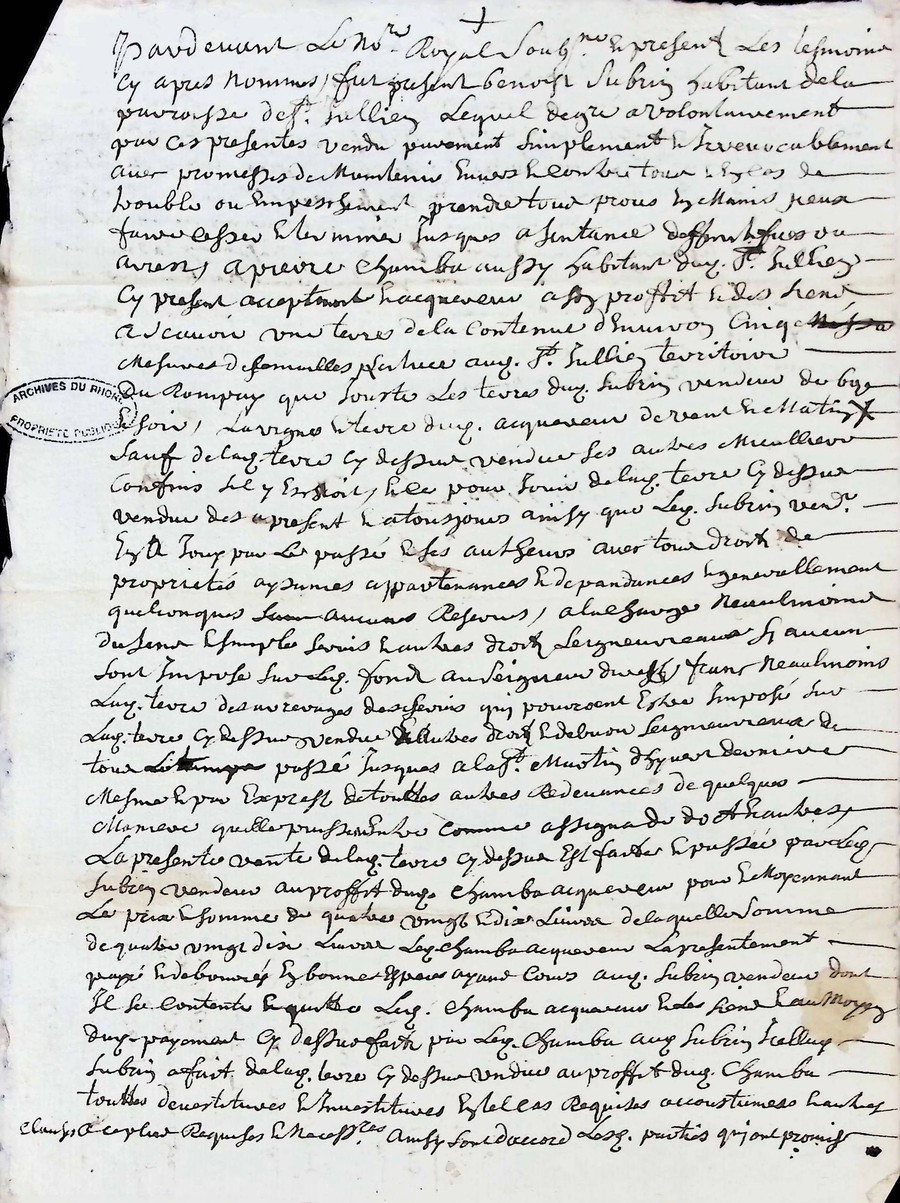 Pardevant Le No.re Royal Soubz.né Et present Les tesmoins
Cy apres Nommes, fut present benoist Subrin habitant dela
parroisse de St. Jullien Lequel degre a volontairement
par ces presentes vendu purement Simplement & Irrevocablement
avec promesses de Maintenir Envers & contre tous en cas de
trouble ou Empeschement prendre tous proces En Mains Iceux
faire cesser & terminer Jusques a Sentance deffinitifues ou
arrest, a pierre Chamba aussy habitant dug. St. Jullien
Cy present acceptant & acquereur a son proffit & des siens
a scavoir une terres de la Contenue d'Environ Cinq
Mesures de semailles scituee aug. St. Jullien territoire
Du Rompay que Jouste Les terres dug. Subrin vendeur de bize
& soir, La vignes & terre dug. acquereur devent & Matin X
Sauf de lag. terre Cy dessus vendue ses autres Meillieurs
Confins sil y Escheoit, & ce pour Jouir delag. terre Cy dessus
vendue des a present & atousjours ainsy que Leg. Subrin vend.r
En a Jouy par Le passé & ses autheurs avec tous droits de
proprietés aysances appartenances & dependances & generallement
quelconques Sans aucunes Reserves, a la charge Neaulmoins
du Sens & simple servis & autres droits Seigneureaux Sy aucun
sont Imposé sur Leg. fond au Seigneur direct, franc Neaulmoins
Lag. terre des arrerages des servis quy pourroent Estre Imposé sur
Lag. terre Cy dessus vendue & autres droits & debvoirs Seigneureaux de
tout Le temps passé Jusques a la St. Martin d'hyver derniere
Mesme & par Exprest de touttes autres Redevances de quelques
Maniere quelle puissent Estre comme assignade de dot & autres,
La presente vente delag. terre Cy dessus Est faitte & passée par Leg.
Subrin vendeur au proffit dug. Chamba acquereur pour & Moyennant
Le prix & somme de quatre vingt & dix Livres de laquelle Somme
de quatre vingt dix Livres Leg. Chamba acquereur La presentement
payé & debourcés En bonnes Especes ayant Cours aug. Subrin vendeur dont
Il se Contente & quitte Leg. Chamba acquereur & Les siens & au Moyen
dug. payement Cy dessus fait par Leg. Chamba aug. Subrin Icelluy
Subrin a fait de lag. terre Cy dessus vendue au proffit dug. Chamba
touttes devestitures & Investitures En tel cas Requises accoustumees & autres
Clauses a ce plus Requises & Necess.res Ainsy sont daccord Lesg. parties quy ont promis
ARCHIVES DU RHONE
PROPRIETE PUBLIQUE